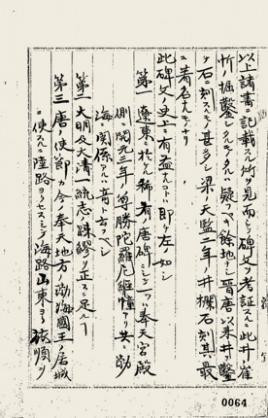 以上諸書ニ記載シタル所ノ見而シテ碑文ヲ考証スニ此井崔
忻ノ掘鑿シタルモノタル疑フヘキ余地ナシ晋唐以来井ヲ鑿
テ石ニ刻スルモノ甚多シ梁ノ天監二年ノ井欄石刻其最
モ著名ナルモノナリ
此碑文ノ史ニ有益ナルコトハ即チ左ノ如シ
第一 遼東ニ於テ稀有唐碑タルコト 奉天宮殿
側開元二年ノ尊勝陀羅尼経幢ヨリ 渤
海ニ関係アルハ
第二 大明及ヒ清ノ疏謬ヲ正スニ足ル
第三 唐ノ使節カ今ノ奉天地方ノ渤海国王ノ居城
ニ使スルニ陸路ヲトラスシテ海路山東ヨリ旅順ヲ
0064